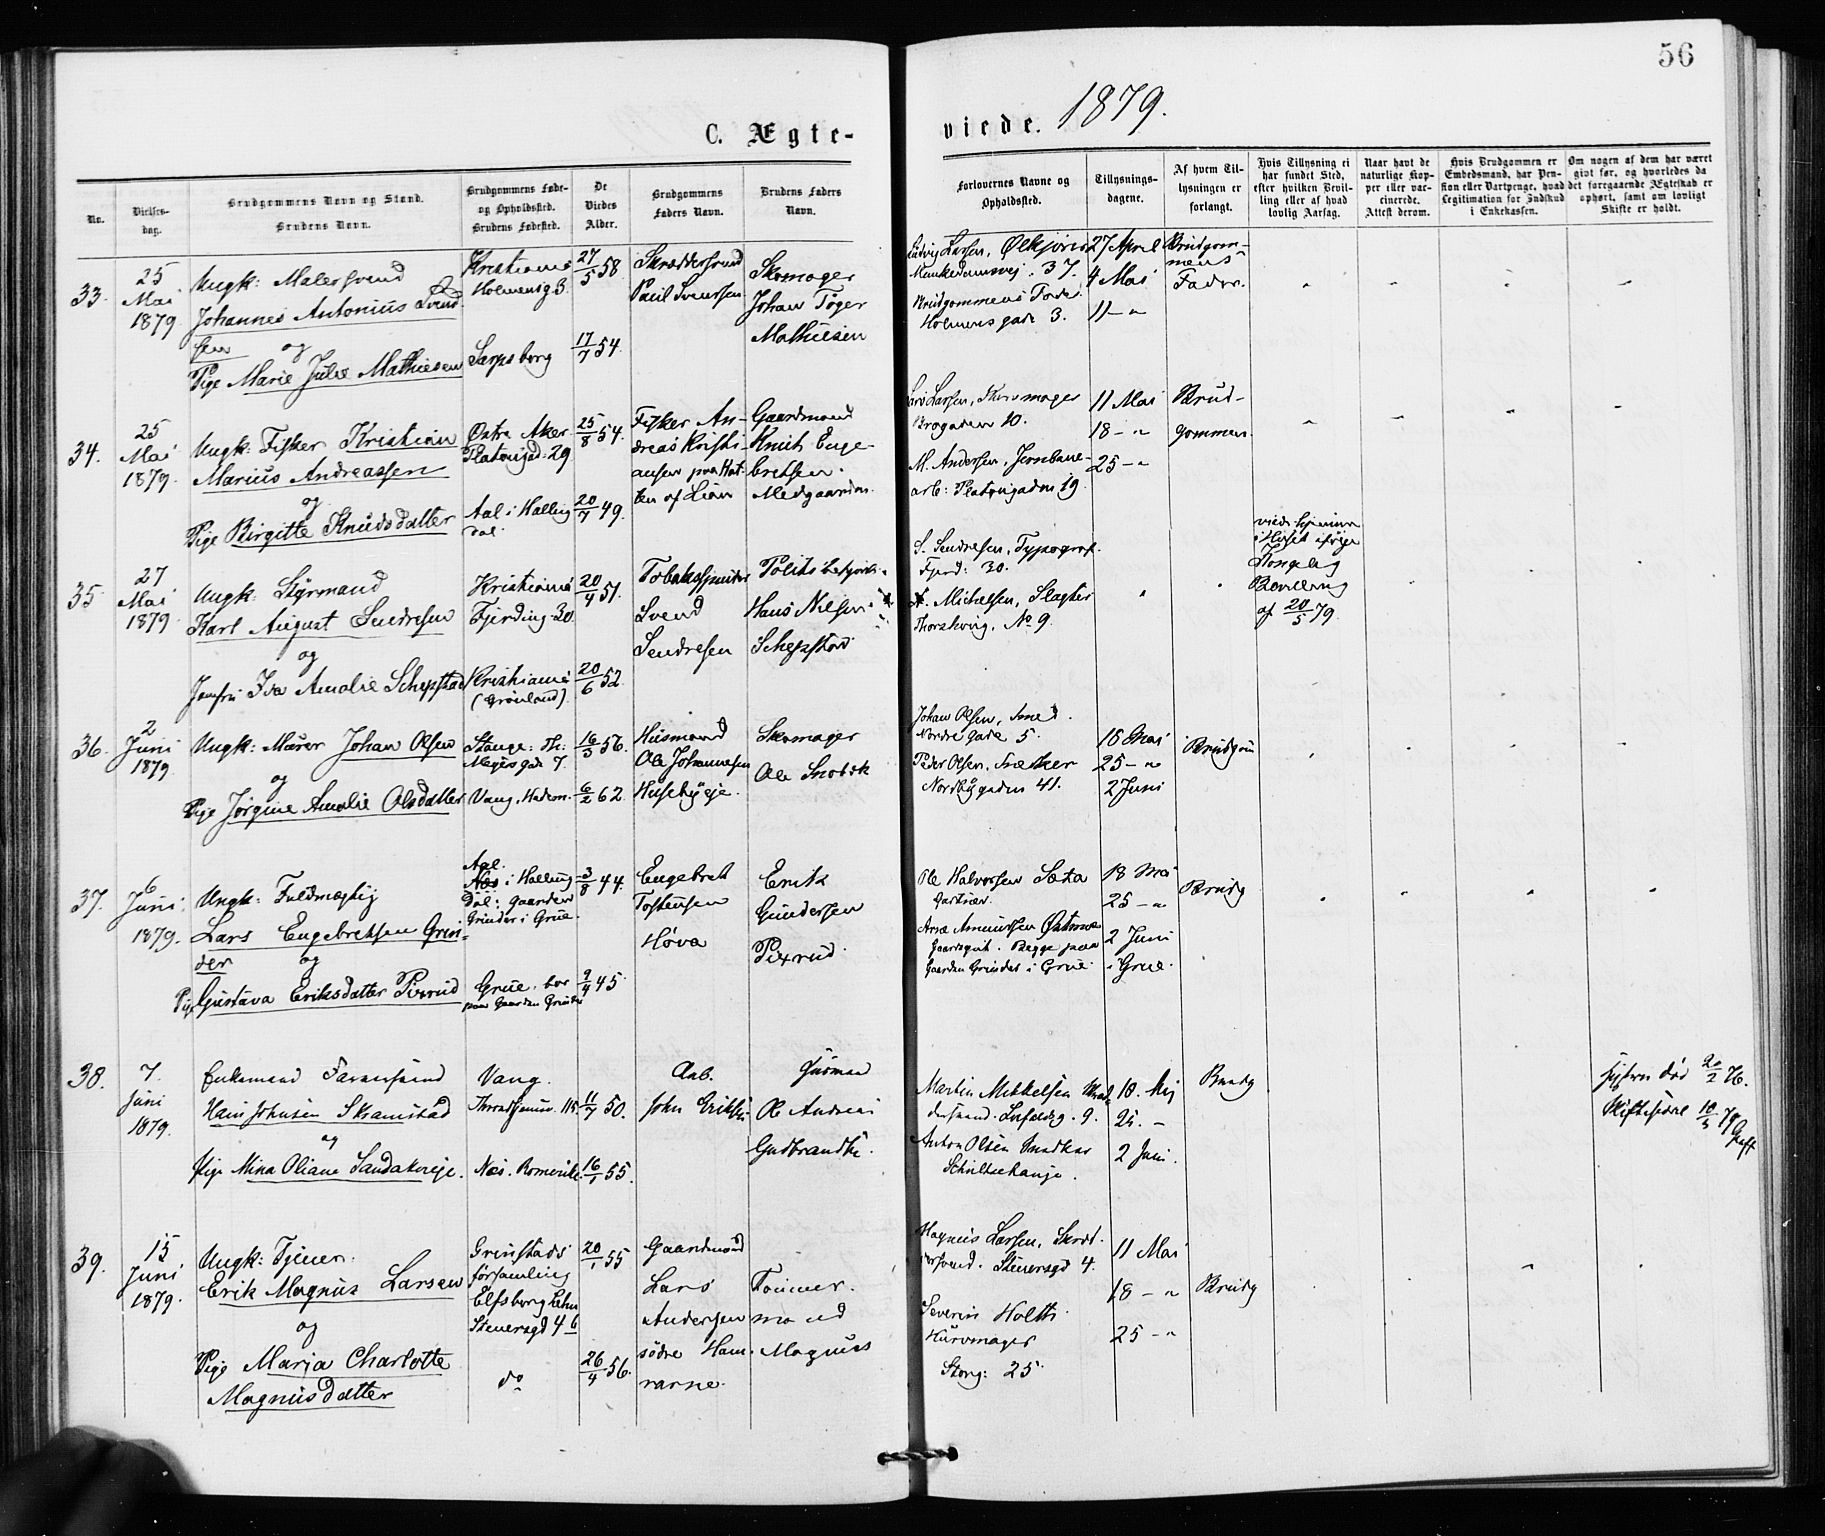 56
C. Ægte-
viede. 1879.
No.
Vielses-
dag.
Brudgommens Navn og Stand.
Brudens Navn.
Brudgommens Føde-
og Opholdssted.
Brudens Fødested.
De
Viedes
Alder.
Brudgommens
Faders Navn.
Brudens Faders
Navn.
Forlovernes Navne og
Opholdssted.
Tillysnings-
dagene.
Af hvem Til-
lysningen er
forlangt.
Hvis Tillysning ei
har fundet Sted,
efter hvilken Bevil-
ling eller af hvad
lovlig Aarsag.
Naar havt de
naturlige Kop-
per eller vac-
cinerede.
Attest derom.
Hvis Brudgommen er
Embedsmand, har Pen-
sion eller Vartpenge, hvad
Legitimation for Indskud
i Enkekassen.
Om nogen af dem har været
givt før, og hvorledes da
det foregaaende Ægteskab er
ophørt, samt om lovligt
Skifte er holdt.
33.
25
Mai
1879.
Ungk: Malersvend
Johannes Antonius Svend
sen og
Pige Marie Julie Mathiesen
Kristiania
Holmensg 3.
Sarpsborg
27/5 58
17/7 54.
Skræddersvend
Paul Svensen
Skomager
Johan Tøger
Mathiesen
Ludvig Larsen, Ølkjører
Munkedamsvej. 37.
Brudgommens Fader
Holmensgade 3.
27 April
4 Mai
11 – "
Brudgom-
mens
Fader.
34.
25
Mai
1879.
Ungk: Fisker Kristian
Marius Andreassen
og
Pige Birgitte Knudsdatter
Østre Aker
Platougad. 29
Aal i Halling
dal
25/8 54.
20/7 49.
Fisker An-
dreas Kristi-
ansen paa Kat-
ten af Lian
Gaardmand
Knut Enge-
bretsen
Medgaarden
Lars Larsen, Skomager
Brogaden 10.
M. Andersen, Jernbane-
arb: Platougaden 19.
11 Mai
18 – "
25 – "
Brud-
gommen
35.
27
Mai
1879.
Ungk: Styrmand
Karl August Sendresen
og
Jomfru Ida Amalie Schepstad
Kristiania
Fjerding. 30.
Kristiania
(Grønland)
20/4 51.
20/6 52.
Tobaksspinder
Svend
Sendresen
Politibetjent
Hans Nilsen
Schepstad
S. Sendresen, Typograf.
Fjerd: 30.
Michelsen, Slagter
Thorshaug. No 9.
viede hjemme
i Huset ifølge
Kongelig
Bevilling
af 20/5 79.
36.
2
Juni
1879.
Ungk: Murer Johan Olsen
og
Pige Jørgine Amalie Olsdatter
Stange: Th:
Meyers gade 7.
Vang, Hedem.
16/3 56.
6/2 62.
Husmand
Ole Johannesen
Husebyeje.
Skomager
Ole
Johan Olsen, Smed.
Nordre Gade 5.
Peder Olsen, Snedker
Nordbygaden 41.
18 Mai
25 – "
2 Juni
Brudgom
37.
6
Juni
1879.
Ungk: Fuldmægtig
Lars Engebretsen Grin-
der og
Pige Gustava Eriksdatter Pixrud
Aal
i Halling
dal: Gaarden
Grinder i Grue.
Grue. bor
paa Gaarden Grinder
3/8 44.
9/4 45.
Engebret
Tostensen
Høva
Erik
Gundersen
Pixrud.
Ole Halvorsen Sæta
Gartner.
Arne Amundsen Østmoe
Gaardsgut. Begge paa
Gaarden Grinder i Grue
18 Mai
25 – "
2 Juni
i Grue.
Brudg
38.
7.
Juni
1879.
Enkemand Farversvend
Hans Johnsen Skramstad
og
Pige Mina Oliane Sandakereje.
Vang.
115
Næs. Romerike
11/7 50.
16/1 55.
Arb.
John Eriksen
Husmand
Ole Andreas
Gudbrandsen.
Martin Mikkelsen
9.
Anton Olsen Snedker
Schultzehaugen.
18. Maj
25. –
2 Juni.
Brudg
Hustru død 20/2 76.
Skifteattest 10/5 79
39.
15
Juni
1879.
Ungk: Tjener.
Erik Magnus Larsen
og
Pige Marja Charlotte
Magnusdatter
Grinstads
forsamling
Elfsborg Lehn
Stenersgd 4 6
do
20/1 55
26/4 56.
Gaardmand
Lars
Andersen
södre Ham-
rarne.
Tømmer-
mand
Magnus
Magnus Larsen, Skræd-
dersvend. Stenersgd 4.
Severin Holth
Kurvmager
Storg: 25
11 Mai
18 – "
25 – "
Brudg